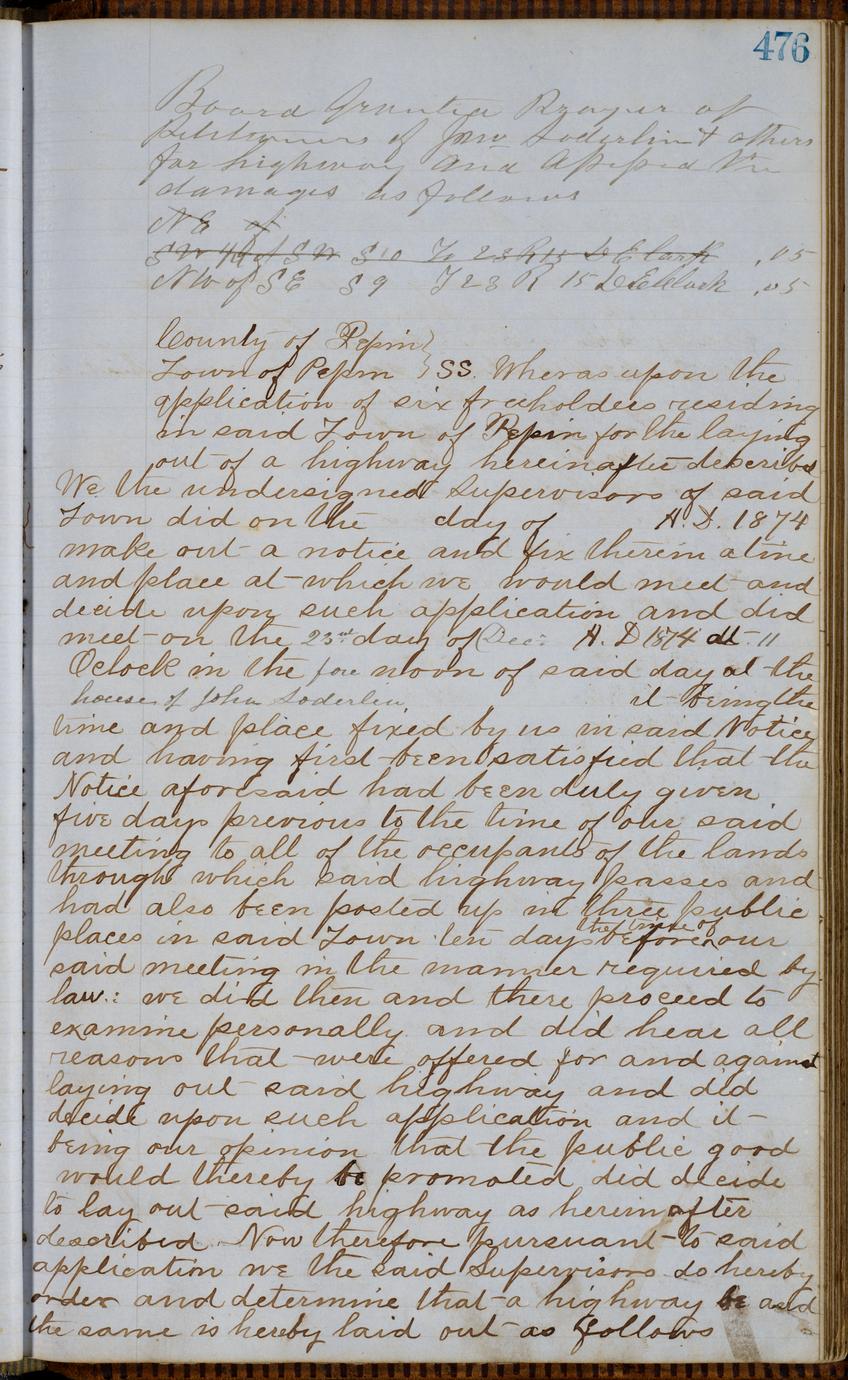 476
Board Granted Prayer of
Petitioners of Jno Soderlin & others
for highway and Assessed the
damages as follows
NE of
SW 1/4 of SW S 10 T 23 R 15 D E Clark .05
NW of SE S 9 T 23 R 15 D E Clark .05
County of Pepin }
Town of Pepin } SS. Wheras upon the
application of six freeholders residing
in said Town of Pepin for the laying
out of a highway hereinafter described
We the undersigned Supervisors of said
Town did on the day of A.D. 1874
make out a notice and fix therein a time
and place at which we would meet and
decide upon such application and did
meet on the 23rd day of Dec: A. D 1874 at 11
Oclock in the fore noon of said day at the
house of John Soderlin it being the
time and place fixed by us in said Notice
and having first been satisfied that the
Notice aforesaid had been duly given
five days previous to the time of our said
meeting to all of the occupants of the lands
through which said highway passes and
had also been posted up in three public
places in said Town ten days before the time of our
said meeting in the manner required by
law.: we did then and there proceed to
examine personally and did hear all
reasons that were offered for and against
laying out said highway and did
decide upon such application and it
being our opinion that the public good
would thereby be promoted did decide
to lay out said highway as hereinafter
described. Now therefore pursuant to said
application we the said Supervisors do hereby
order and determine that a highway be and
the same is hereby laid out as follows